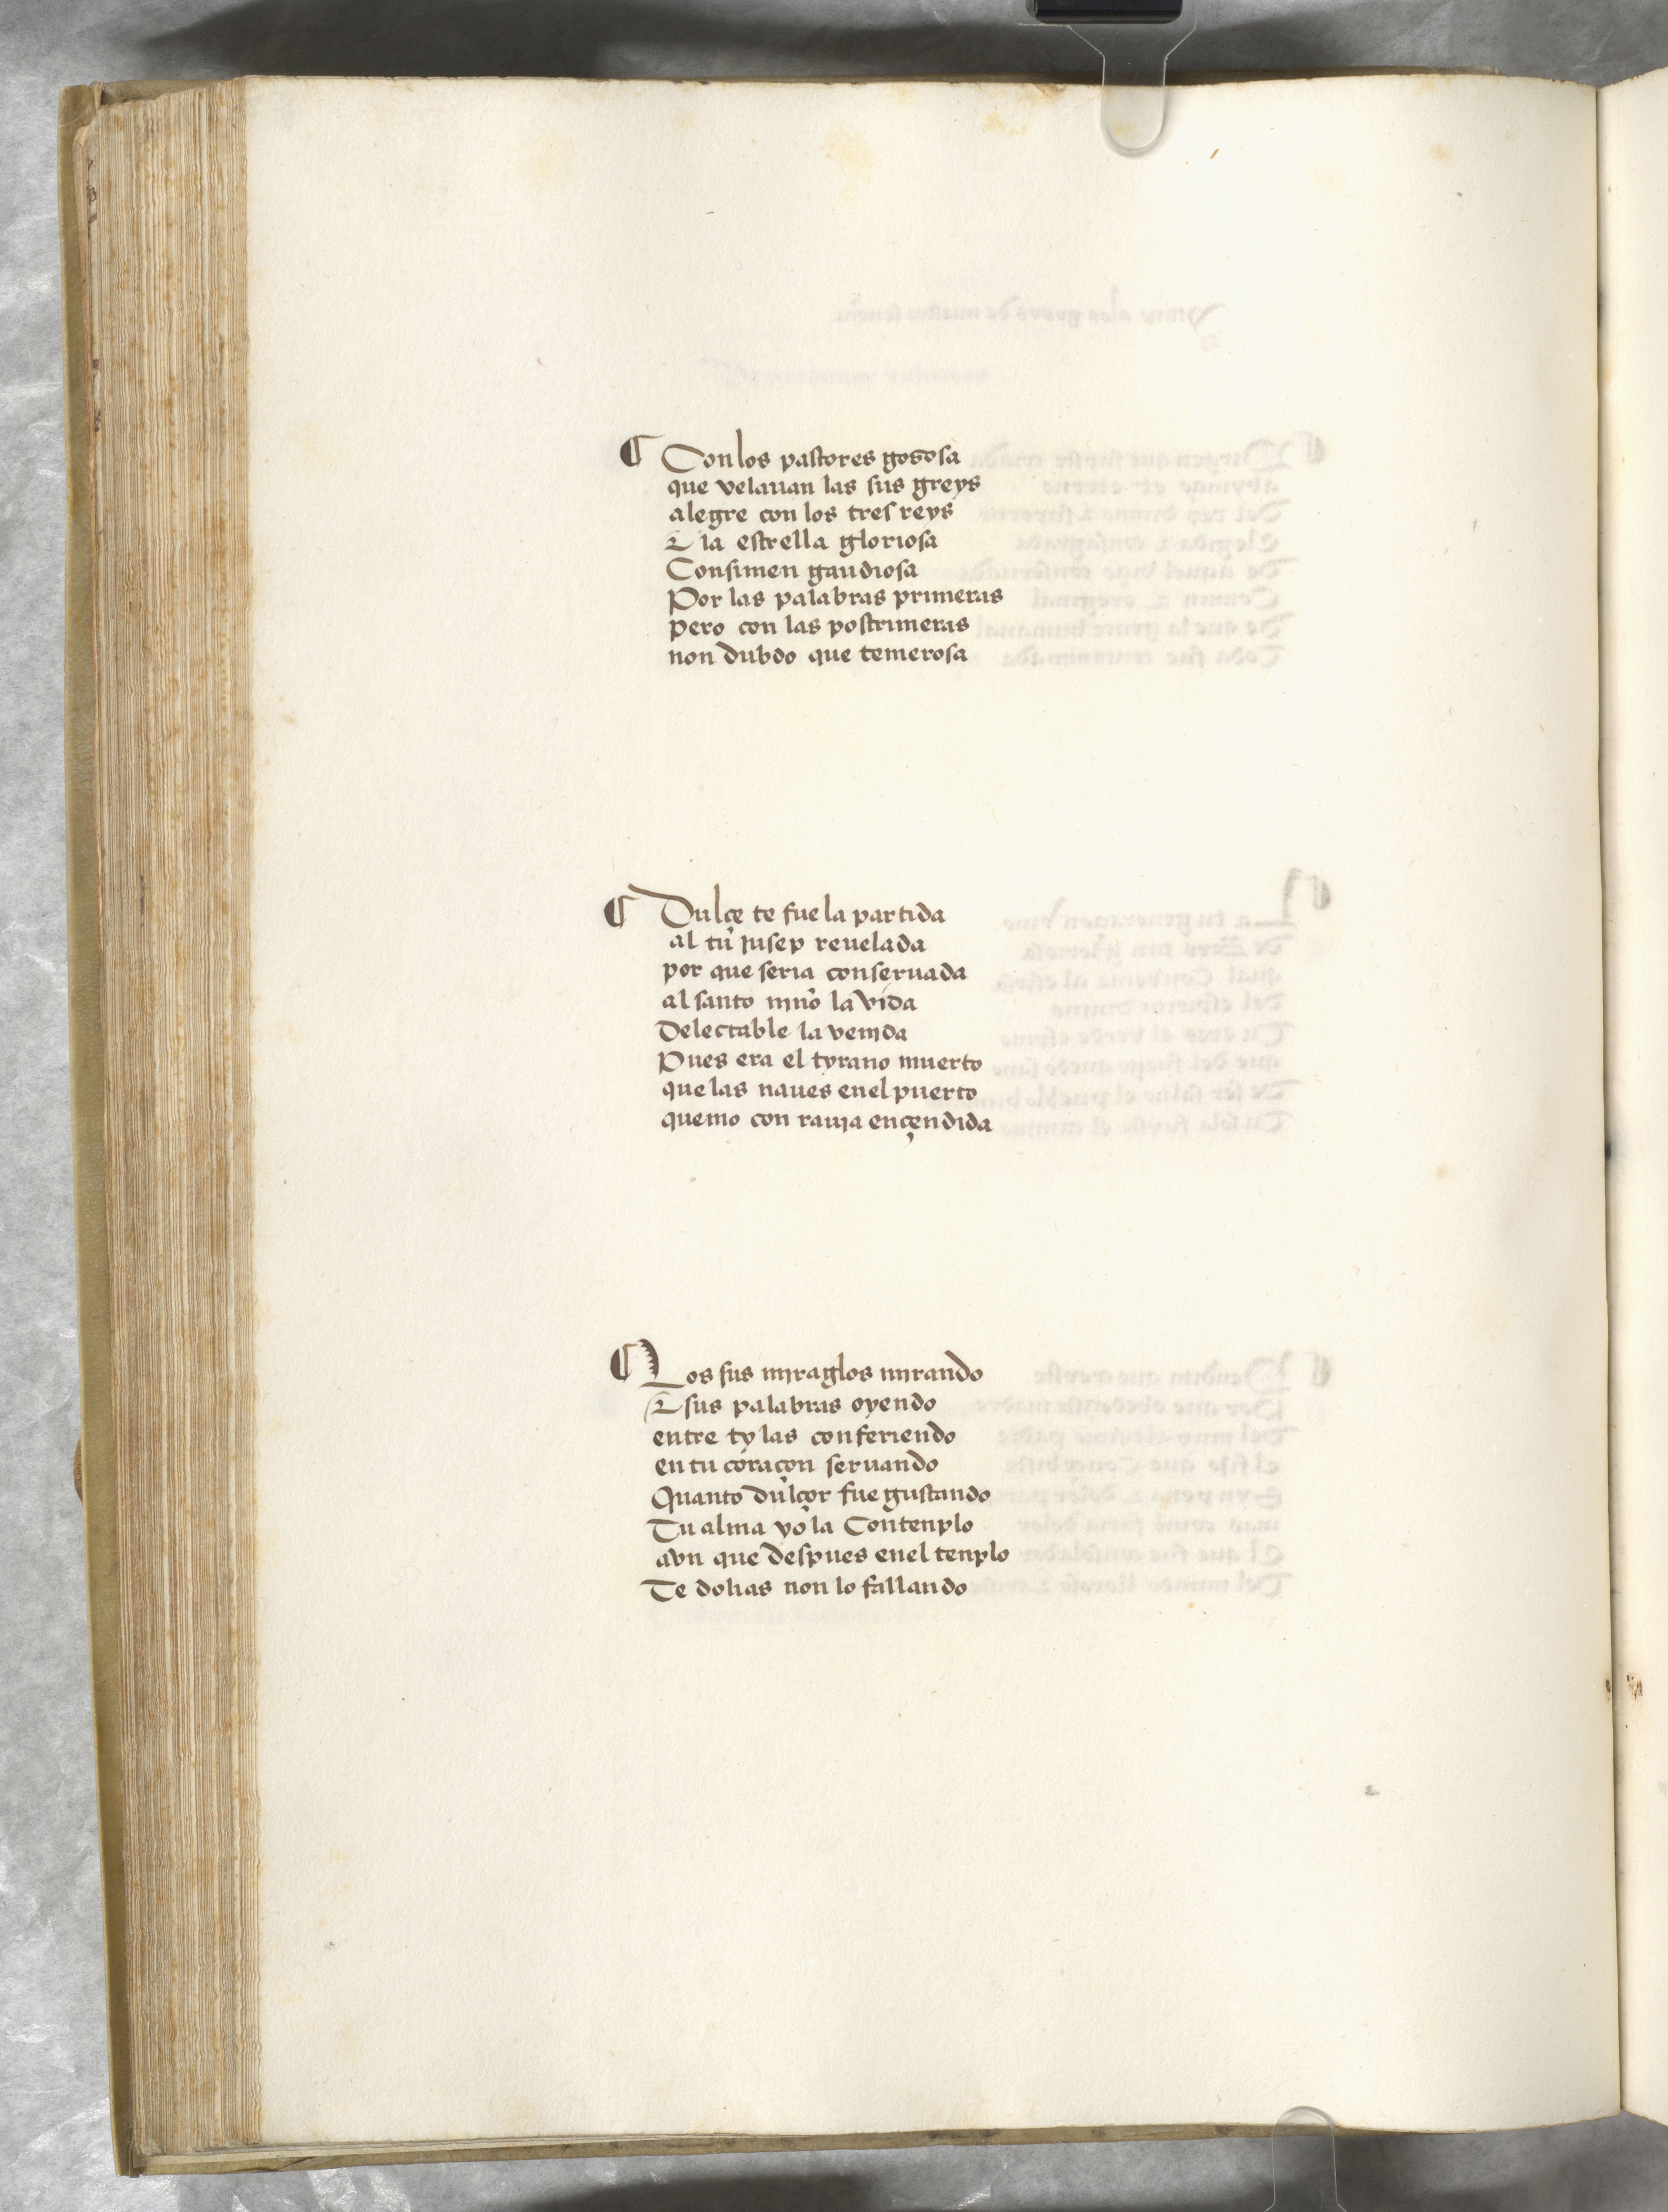 ¶ Con los pastores gozosa
que velauan las sus greys
alegre con los tres reys
⁊ la estrella gloriosa
Con simen gaudiosa
Por las palabras primeras
pero con las postrimeras
non dubdo que temerosa
¶ Dulçe te fue la partida
al tu iusep reuelada
por que seria conseruada
al santo niño la vida
Delectable la venida
Pues era el tyrano muerto
que las naues enel puerto
quemo con rauia ençendida
¶ Los sus miraglos mirando
⁊ sus palabras oyendo
entre ty las conferiendo
en tu coraçon seruando
Quanto dulçor fue gustando
Tu alma yo la Contenplo
avn que despues enel tenplo
Te dolias non lo fallando